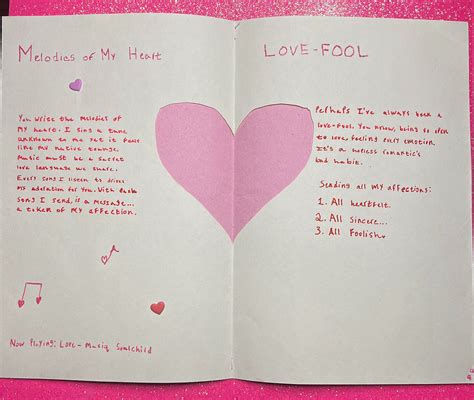 Melodies of My Heart
You write the melodies of
my heart. I sing a tune
unknown to me yet it flows
like my native tounge.
Music must be a secret
love language we share.
Every song I listen to drives
my adoration for you. With each
song I send, is a message...
a token of my affection.
Now Playing: Love - Musiq Soulchild
LOVE-FOOL
Perhaps I've always been a
love-fool. You know, being so open
to love, feeling every emotion.
It's a hopeless romantic's
bad habit.
Sending all my affections:
1. All heartfelt.
2. All Sincere...
3. All Foolish.